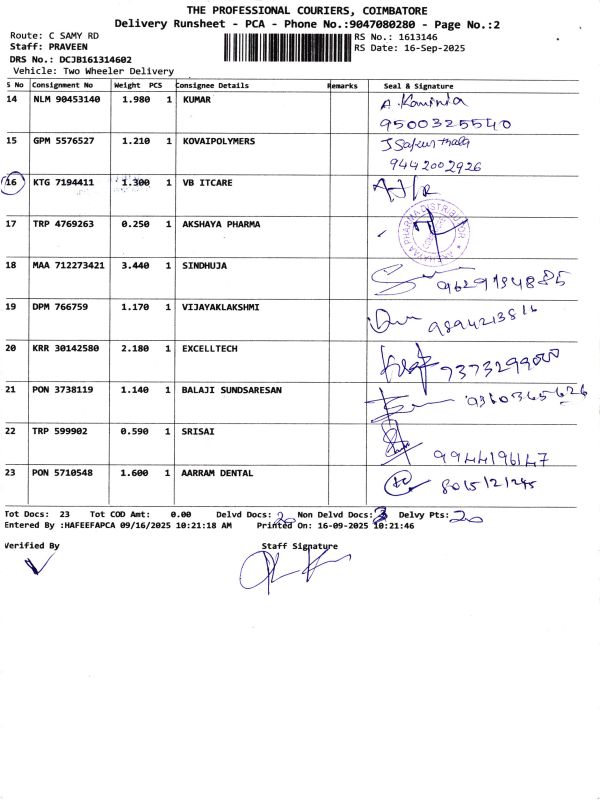 THE PROFESSIONAL COURIERS, COIMBATORE
Delivery Runsheet - PCA - Phone No.:9047080280 - Page No.:2
Route: C SAMY RD RS No.: 1613146
Staff: PRAVEEN RS Date: 16-Sep-2025
DRS No.: DCJB161314602
Vehicle: Two Wheeler Delivery
S No Consignment No Weight PCS Consignee Details Remarks Seal & Signature
14 NLM 90453140 1.980 1 KUMAR
9500325540
15 GPM 5576527 1.210 1 KOVAIPOLYMERS
9442002926
16 KTG 7194411 1.300 1 VB ITCARE
17 TRP 4769263 0.250 1 AKSHAYA PHARMA
AKSHAYAA PHARMA DISTRIBUTOR
18 MAA 712273421 3.440 1 SINDHUJA
19 DPM 766759 1.170 1 VIJAYAKLAKSHMI
20 KRR 30142580 2.180 1 EXCELLTECH
7373299000
21 PON 3738119 1.140 1 BALAJI SUNDSARESAN
9360365626
22 TRP 599902 0.590 1 SRISAI
9944196147
23 PON 5710548 1.600 1 AARRAM DENTAL
Tot Docs: 23 Tot COD Amt: 0.00 Delvd Docs: 20 Non Delvd Docs: 3 Delvy Pts: 20
Entered By :HAFEEFAPCA 09/16/2025 10:21:18 AM Printed On: 16-09-2025 10:21:46
Verified By Staff Signature